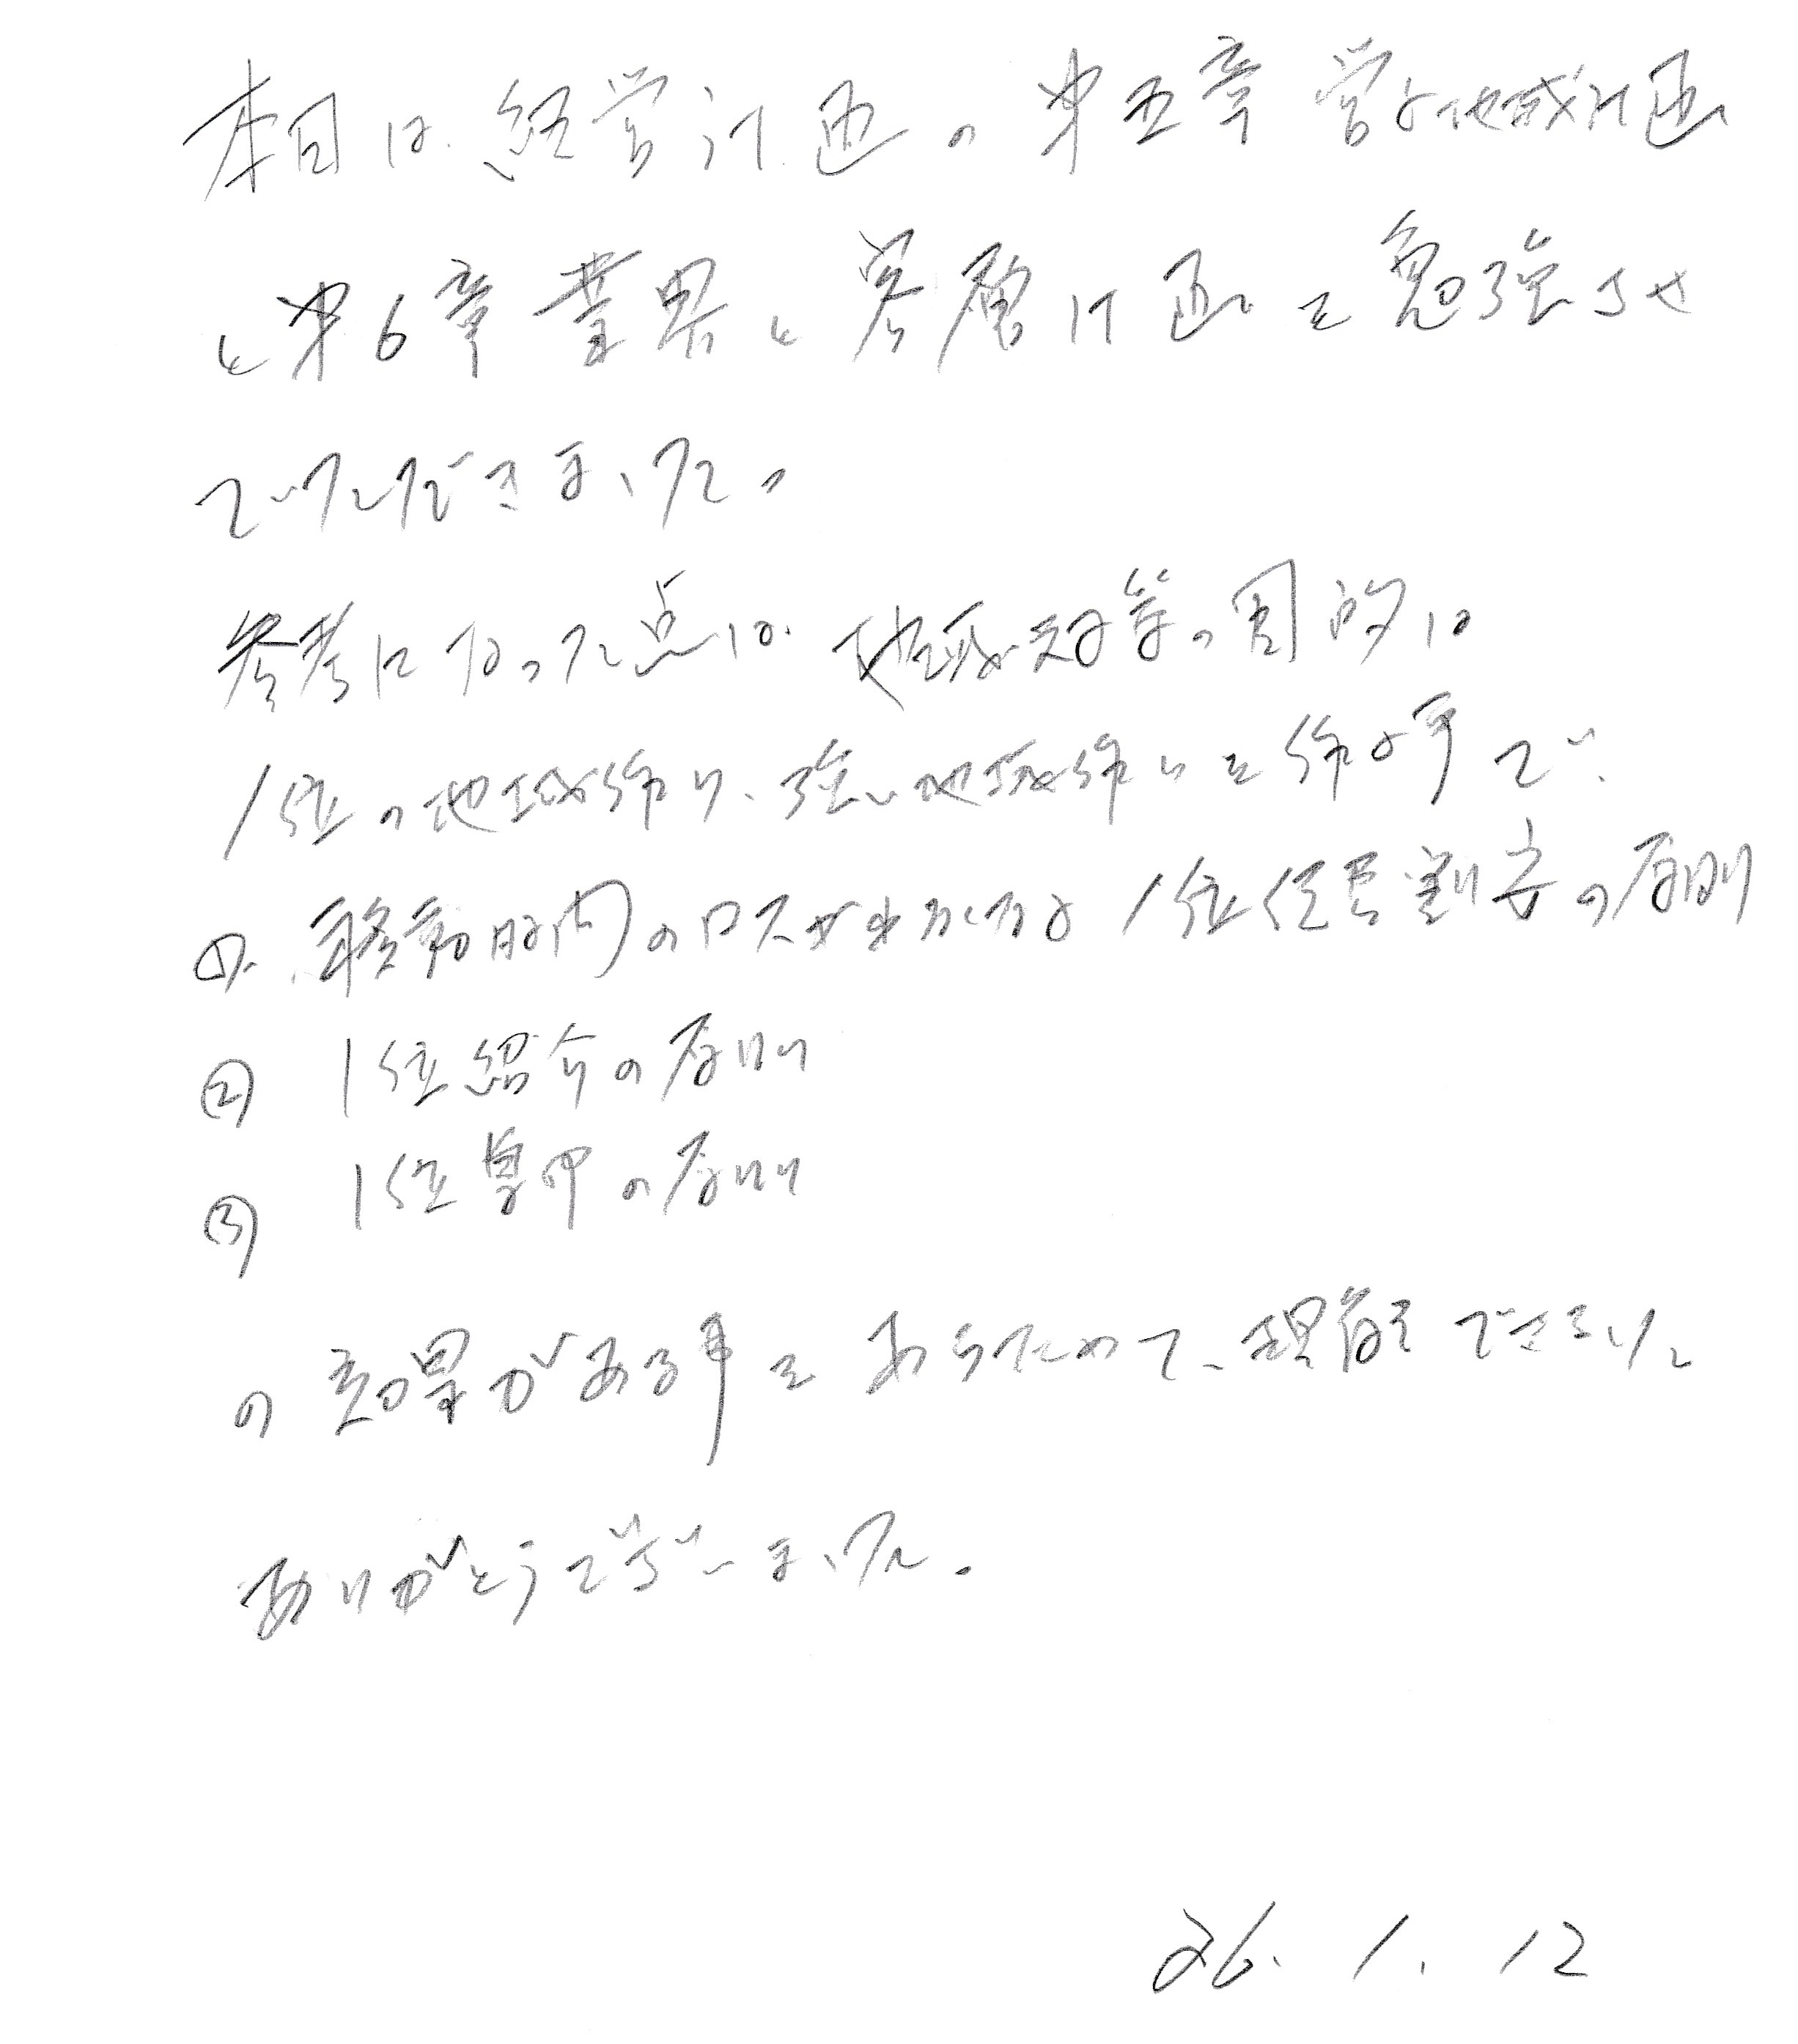 本日は、経営計画の第五章 営業地域計画
と第6章 業界と客層計画を勉強させ
ていただきました。
参考になった点は、地域対策の目的は
1位の地域作り、強い地域作りを作る事で、
①、移動時間のロスが少なくなる 1位経費割安の原則
② 1位紹介の原則
③ 1位集中の原則
の効果がある事をあらためて、理解できました
ありがとうございました。
26. 1. 12